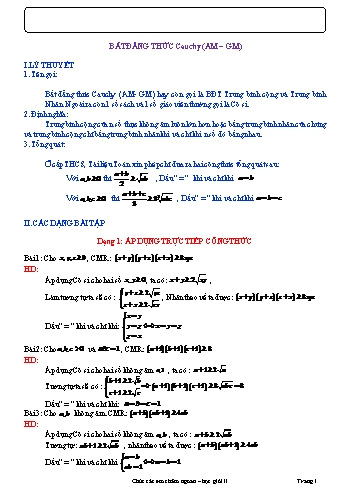 BẤT ĐẲNG THỨC Cauchy (AM – GM)
I. LÝ THUYẾT
1. Tên gọi:
Bất đẳng thức Cauchy (AM- GM) hay còn gọi là BĐT Trung bình cộng và Trung bình
Nhân. Ngoài ra còn 1 số sách và 1 số giáo viên thường gọi là Cô si.
2. Định nghĩa:
Trung bình cộng của n số thực không âm luôn lớn hơn hoặc bằng trung bình nhân của chúng
và trung bình cộng chỉ bằng trung bình nhân khi và chỉ khi n số đó bằng nhau.
3. Tổng quát:
Ở cấp THCS, Tài liệu Toán xin phép chỉ đưa ra hai công thức tổng quát sau:
Với a,b≥0 thì a+b/2 ≥ √ab , Dấu " = " khi và chỉ khi a=b
Với a,b,c≥0 thì a+b+c/3 ≥ ∛abc , Dấu " = " khi và chỉ khi a=b=c
II. CÁC DẠNG BÀI TẬP
Dạng 1: ÁP DỤNG TRỰC TIẾP CÔNG THỨC
Bài 1: Cho x,y,z≥0, CMR: (x+y)(y+z)(z+x)≥8xyz
HD:
Áp dụng Cô si cho hai số x,y≥0, ta có: x+y≥2√xy ,
Làm tương tự ta sẽ có: { y+z≥2√yz z+x≥2√zx , Nhân theo vế ta được: (x+y)(y+z)(z+x)≥8xyz
Dấu " = " khi và chỉ khi: { x=y y=z z=x
Bài 2: Cho a,b,c>0 và abc=1, CMR: (a+1)(b+1)(c+1)≥8
HD:
Áp dụng Cô si cho hai số không âm a,1 , ta có: a+1≥2√a
Tương tự ta sẽ có: { b+1≥2√b c+1≥2√c => (a+1)(b+1)(c+1)≥8√abc=8
Dấu " = " khi và chỉ khi: a=b=c=1
Bài 3: Cho a,b không âm, CMR:
HD:
Áp dụng Cô si cho hai số không âm a,b , ta có: a+b≥2√ab
Tương tự: ab+1≥2√ab , nhân theo vế ta được:
Dấu " = " khi và chỉ khi { a=b ab=1
Chúc các em chăm ngoan – học giỏi !!
Trang 1